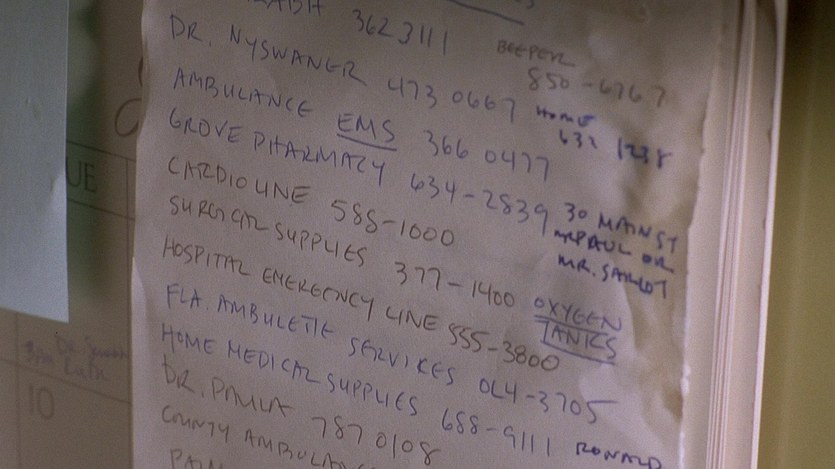 362 3111 BEEPER
850-6767
DR. NYSWANER 473 0667 HOME
632 1238
AMBULANCE EMS 366 0477
GROVE PHARMACY 634-2839 30 MAIN ST
MR PAUL OR
MR.
CARDIO LINE 588-1000
SURGICAL SUPPLIES 377-1400 OXYGEN
TANKS
HOSPITAL EMERGENCY LINE 555-3800
FLA. AMBULETTE SERVICES 064-3705
HOME MEDICAL SUPPLIES 688-9111 RONALD
DR. PAULA 787 0108
COUNTY
UE
10